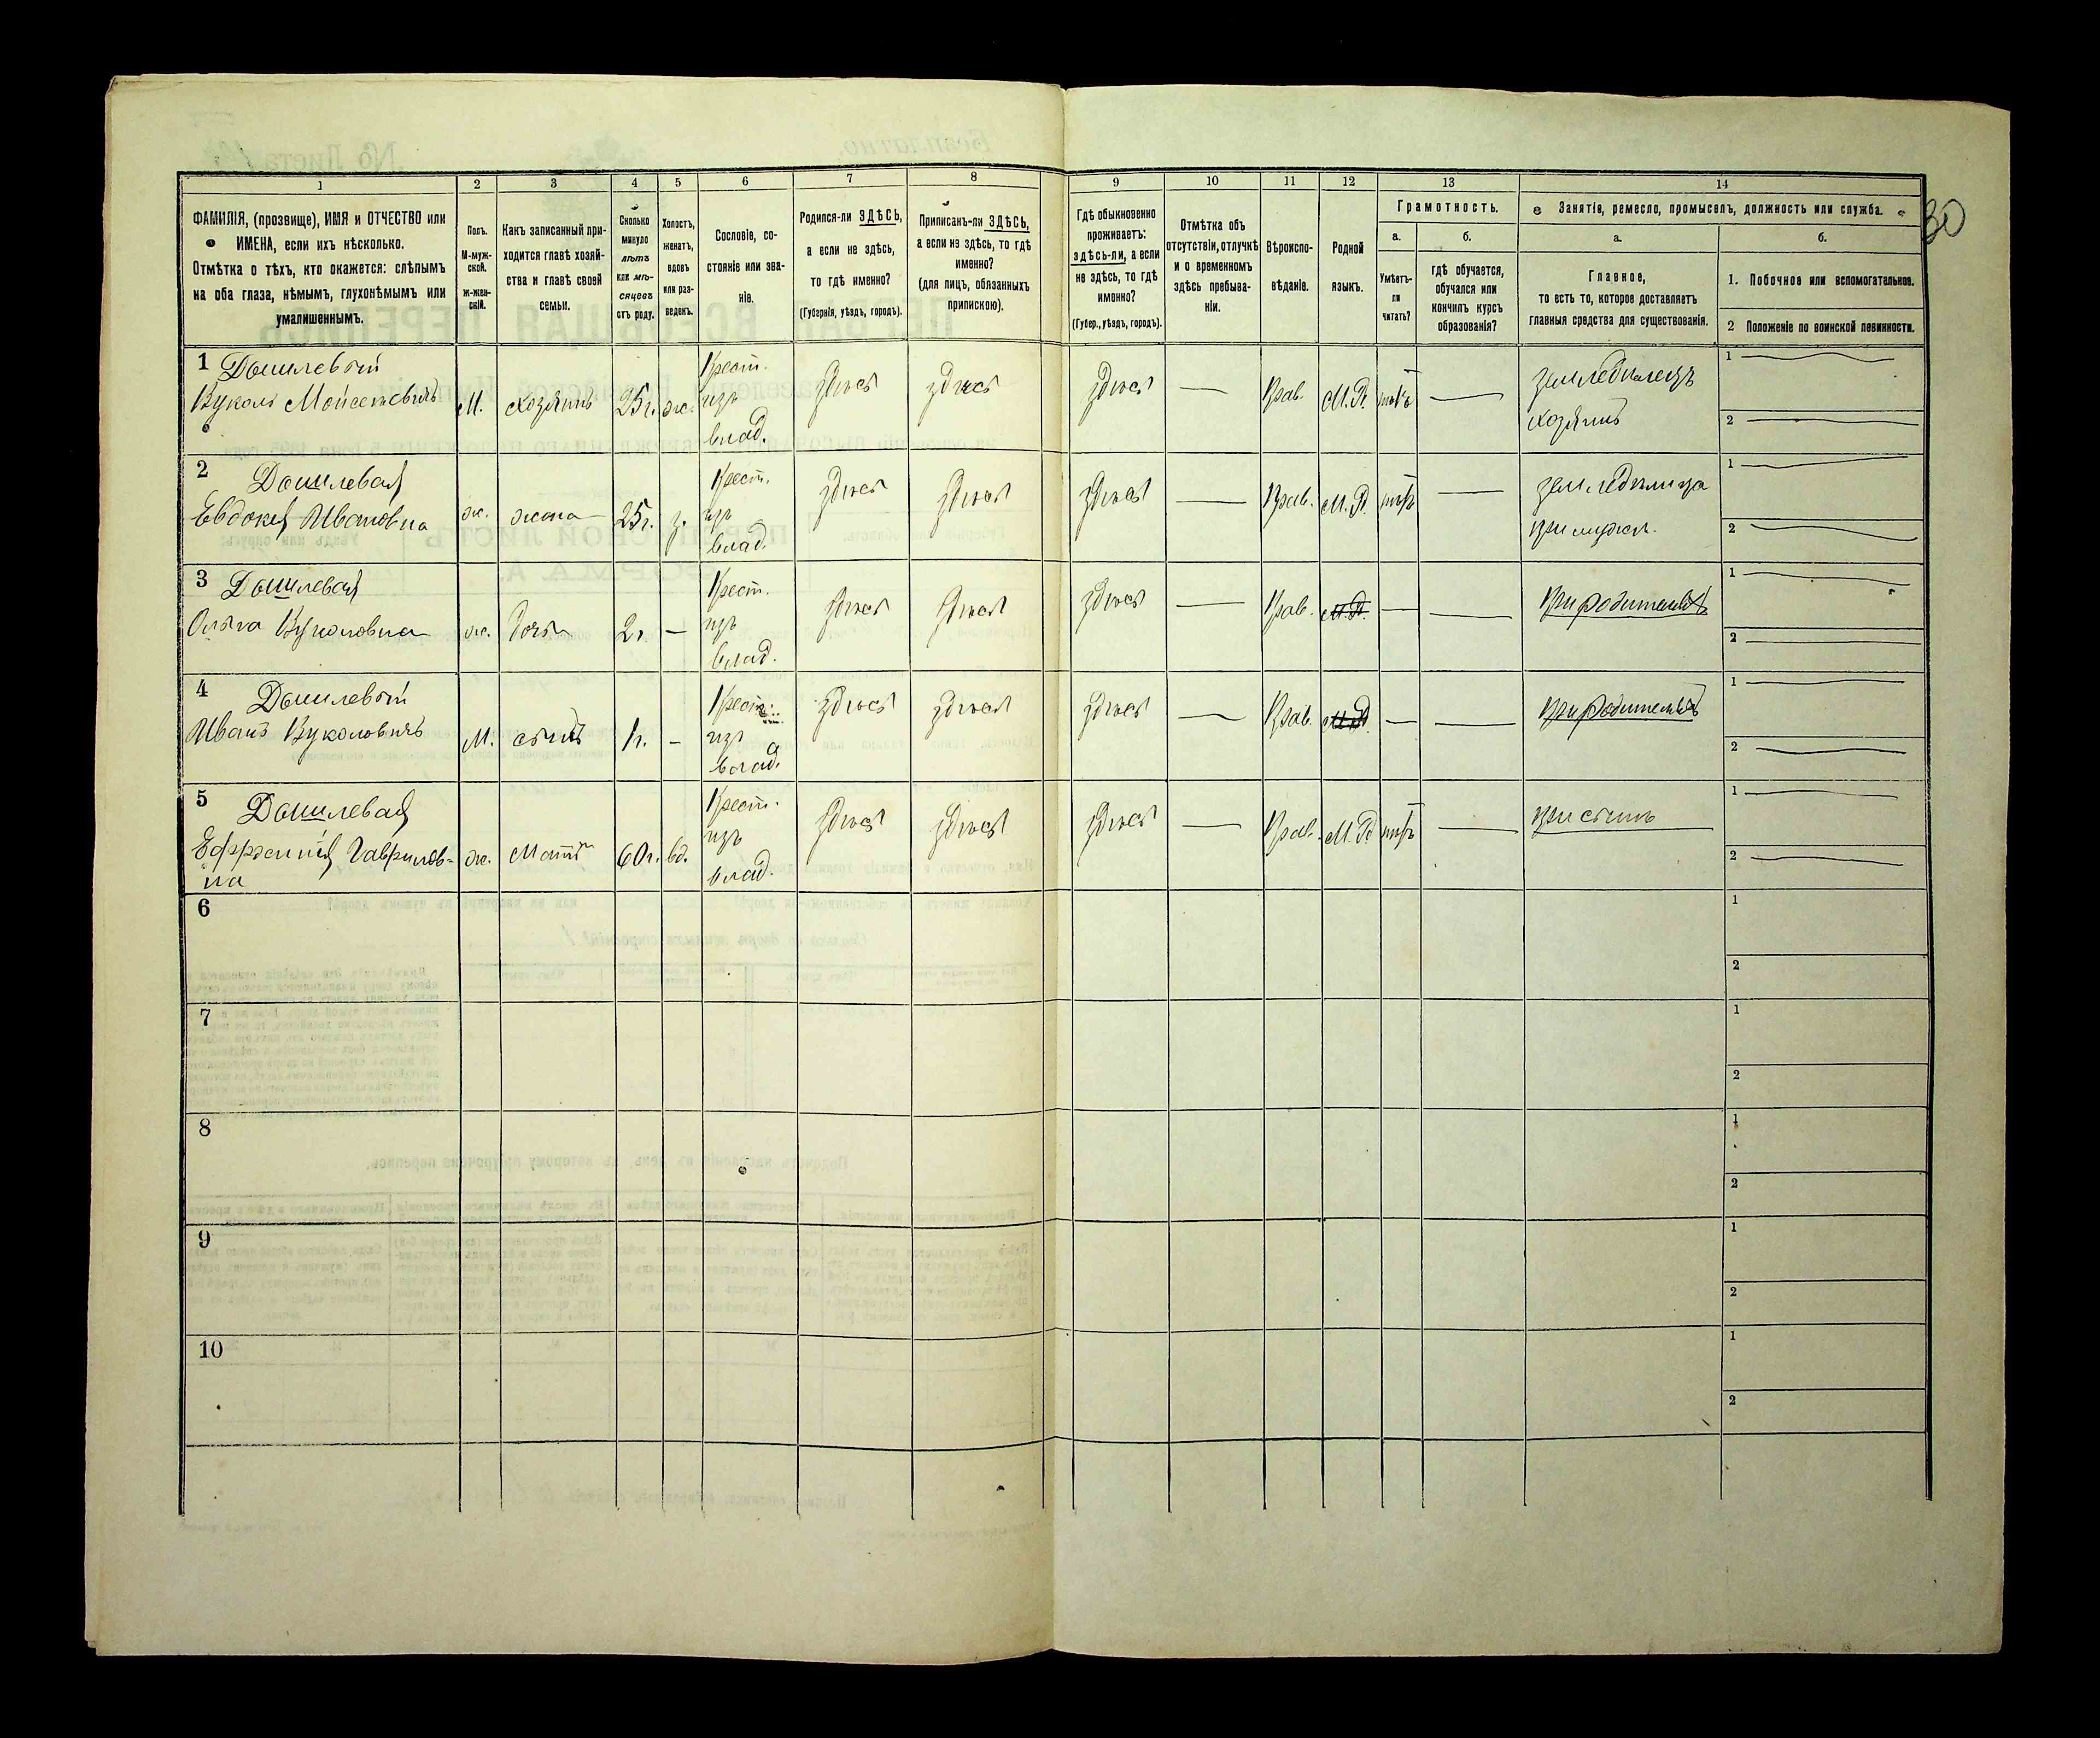 30
1 2 3 4 5 6 7 8 9 10 11 12 13 14
ФАМИЛІЯ, (прозвище), ИМЯ и ОТЧЕСТВО или
ИМЕНА, если ихъ нѣсколько.
Отмѣтка о тѣхъ, кто окажется: слѣпымъ
на оба глаза, нѣмымъ, глухонѣмымъ или
умалишеннымъ.
Полъ.
М-муж-
ской.
Ж-жен-
скій.
Какъ записанный при-
ходится главѣ хозяй-
ства и главѣ своей
семьи.
Сколько
минуло
лѣтъ
или мѣ-
сяцевъ
отъ роду.
Холостъ,
женатъ,
вдовъ
или раз-
веденъ.
Сословіе, со-
стояніе или зва-
ніе.
Родился-ли ЗДѢСЬ,
а если не здѣсь,
то гдѣ именно?
(Губернія, уѣздъ, городъ).
Приписанъ-ли ЗДѢСЬ,
а если не здѣсь, то гдѣ
именно?
(для лицъ, обязанныхъ
припискою).
Гдѣ обыкновенно
проживаетъ:
здѣсь-ли, а если
не здѣсь, то гдѣ
именно?
(Губер., уѣздъ, городъ).
Отмѣтка объ
отсутствіи, отлучкѣ
и о временномъ
здѣсь пребыва-
ніи.
Вѣроиспо-
вѣданіе.
Родной
языкъ.
Грамотность.
а.
Умѣетъ-
ли
читать?
б.
гдѣ обучается,
обучался или
кончилъ курсъ
образованія?
Занятіе, ремесло, промыселъ, должность или служба.
а.
Главное,
то есть то, которое доставляетъ
главныя средства для существованія.
б.
1. Побочное или вспомогательное.
2 Положеніе по воинской повинности.
1
Вуколъ Моисеевичъ
М. хозяинъ 25 г. же.
Крест.
изъ
влад.
здѣсь здѣсь здѣсь — Прав. М.Р. нѣтъ —
земледѣлецъ
хозяинъ
1 —
2 —
2
Евдокія Ивановна
ж. жена 25 г. з.
Крест.
изъ
влад.
здѣсь здѣсь здѣсь — Прав. М.Р. нѣтъ —
земледѣлица
при мужѣ.
1 —
2 —
3
Вуколовна
ж. дочь 2 г. —
Крест.
изъ
влад.
здѣсь здѣсь здѣсь — Прав. М.Р. — —
при родителяхъ
1 —
2 —
4
Иванъ Вуколовичъ
М. сынъ 1 г. —
Крест.
изъ
влад.
здѣсь здѣсь здѣсь — Прав. М.Р. — —
при родителяхъ
1 —
2 —
5
Гаврилов-
на
ж. Мать 60 г. вд.
Крест.
изъ
влад.
здѣсь здѣсь здѣсь — Прав. М.Р. нѣтъ —
при сынѣ
1 —
2 —
6
1
2
7
1
2
8
1
2
9
1
2
10
1
2